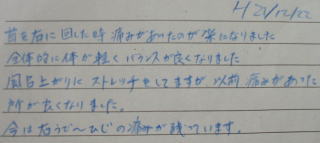 H21/12/22
首を右に回した時 痛みがあったのが楽になりました
全体的に体が軽く バランスが良くなりました
風呂上がりに ストレッチをしてますが 以前 痛みがあった
所が良くなりました。
今は右うで〜ひじの痛みが残っています。